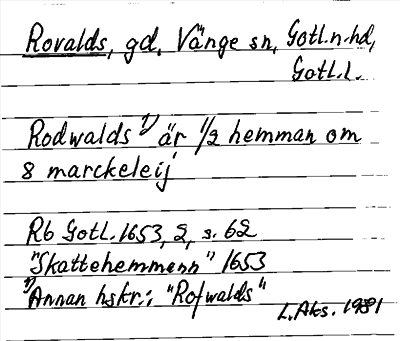 Rovalds, gd, Vänge sn, Gotl.n.hd,
Gotl.l.
Rodwalds 1) är 1/2 hemman om
8 marckeleij
Rb Gotl. 1653, 2, s. 62
"Skattehemmenn" 1653
1) Annan hskr.: "Rofwalds"
L.Aks. 1981